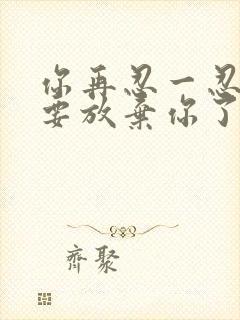 你再忍一忍
要放弃你了
齊聚